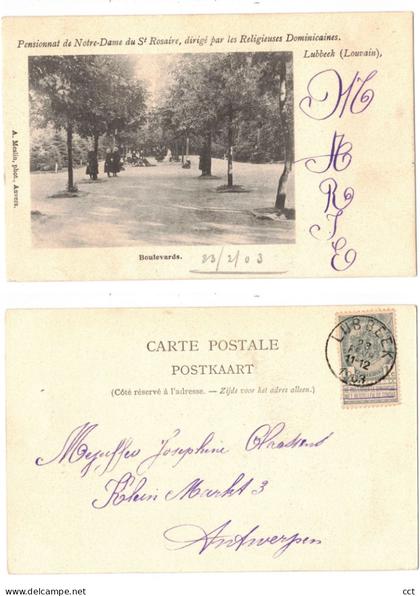 Pensionnat de Notre-Dame du St Rosaire, dirigé par les Religieuses Dominicaines.
Lubbeek (Louvain),
MARIE
A. Meslin, phot., Anvers.
Boulevards.
23/2/03
CARTE POSTALE
POSTKAART
(Côté réservé à l'adresse. — Zijde voor het adres alleen.)
LUBBEEK
23
11-12
1903
Mejuffer Josephine Claassens
Klein Markt 3
Antwerpen
cct